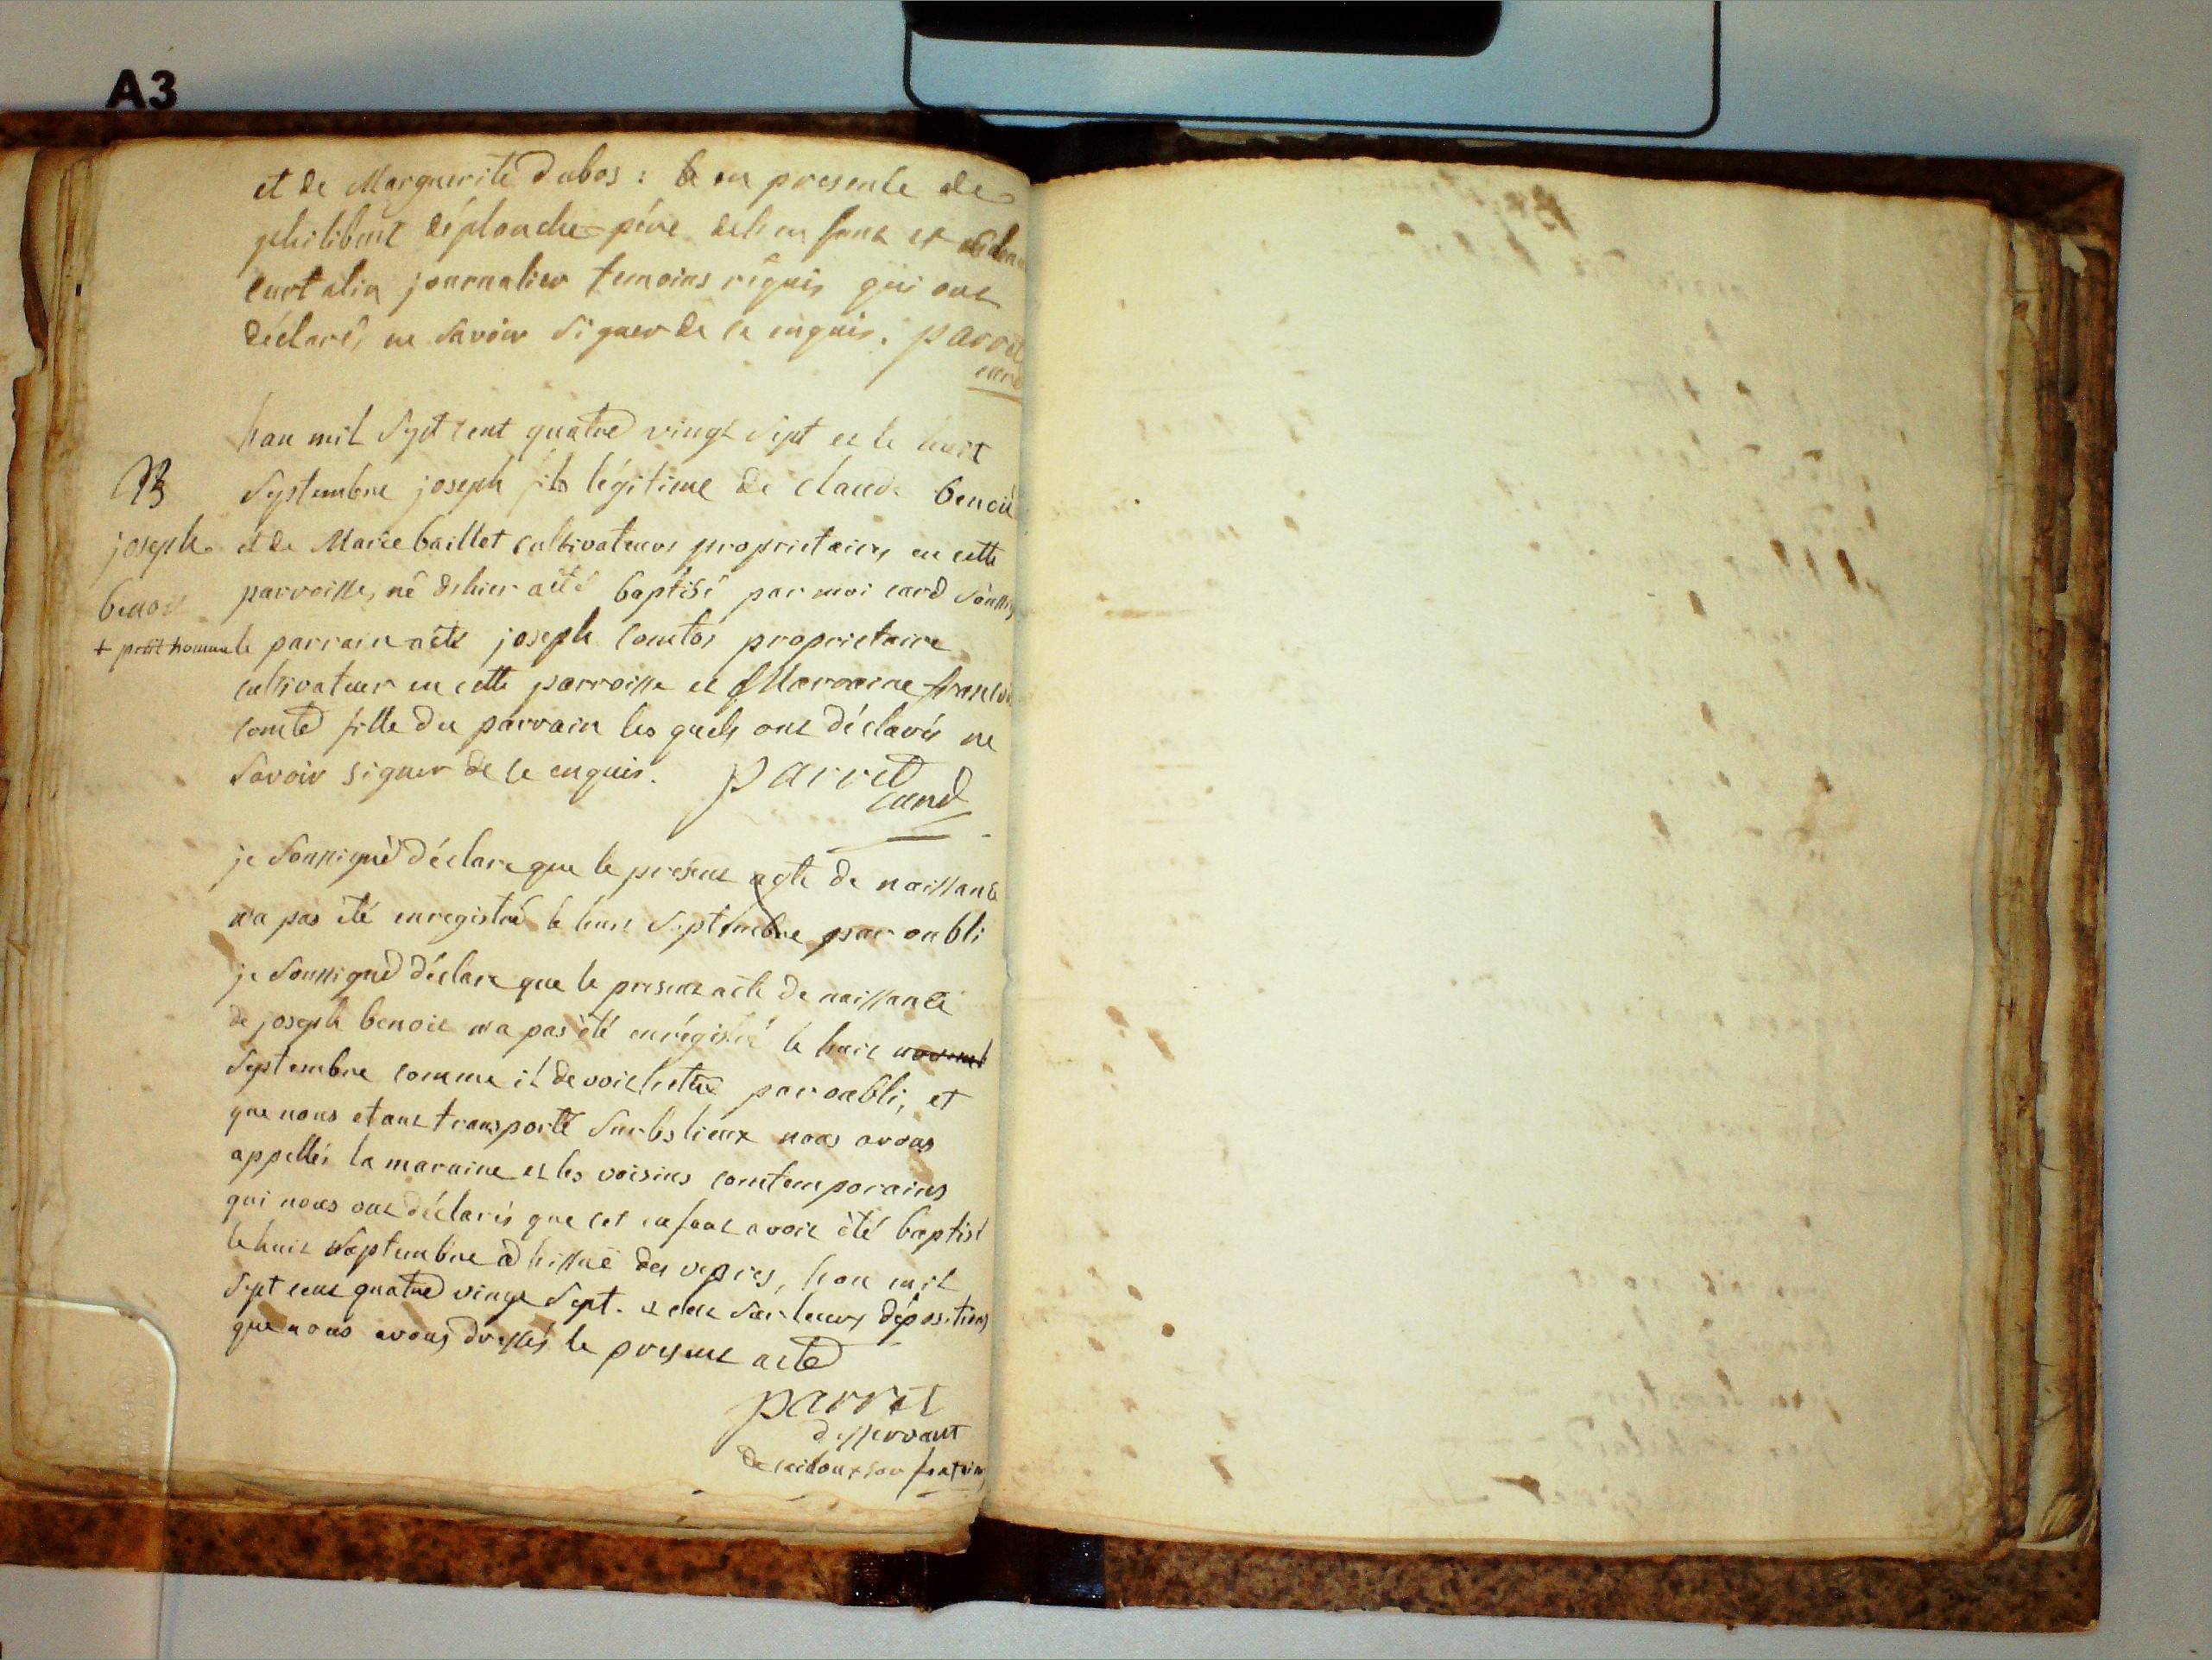 A3
et de Marguerite dubos : & en presente de
philibert déplanche père delenfant et
curtalin journalier temoins réquis qui ont
déclarés ne savoir signer de ce enquis. parret
curé
lan mil sept cent quatre vingt sept et le huit
B
septembre joseph fils légitime de claude benoit
joseph
et de Marie baillet cultivateurs proprietaires en cette
benoit
parroisse, né dehier a été baptisé par moi curé soussig
+ petit homme
le parrain a été joseph comtos proprietaire
cultivateur en cette parroisse et Marraine francoi
comte fille du parrain les quels ont déclarés ne
savoir signer de ce enquis. parret
curé
je soussigné déclare que le present acte de naissance
na pas été enregistré le huit septembre par oubli
je soussigné déclare que le present acte de naissance
de joseph benoit na pas été enrégistré le huit novemb
septembre comme il devoit lettre par oubli, et
que nous etant transporté sur les lieux nous avons
appellés la maraine et les voisins comtemporains
qui nous ont déclarés que cet enfant avoit été baptisé
le huit septembre a lissue des vepres, lan mil
sept cent quatre vingt sept. et cest sur leurs dépositions
que nous avons dressés le present acte
parret
desservant